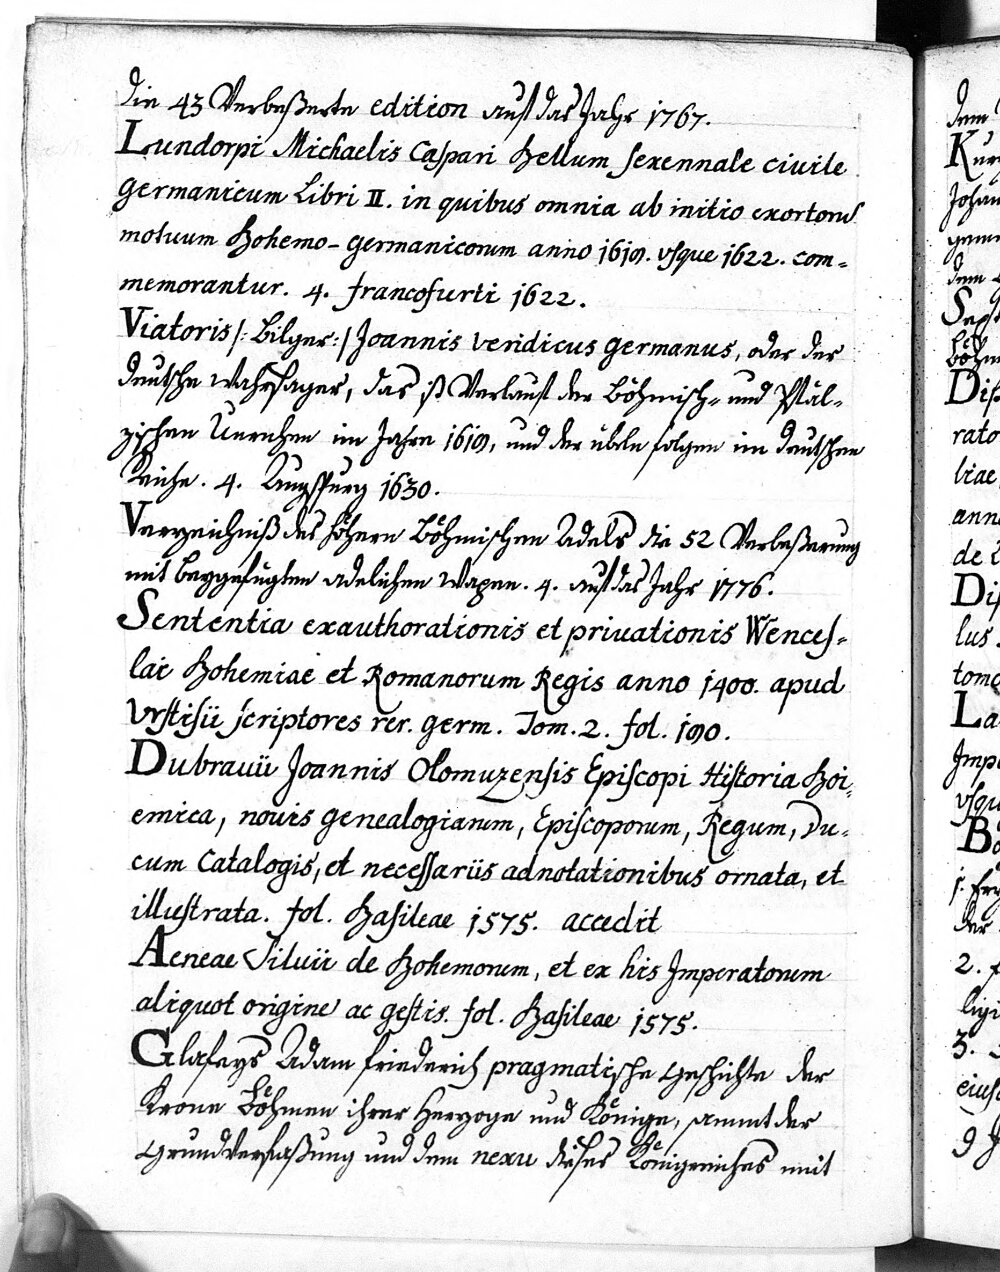 die 43 Verbeßerte edition auf das Jahr 1767.
Lundorpi Michaelis Caspari Bellum sexennale civile
germanicum Libri II. in quibus omnia ab initio exortorum
motuum Bohemo-germanicorum anno 1619. usque 1622. com-
memorantur. 4. francofurti 1622.
Viatoris /: Bilger :/ Joannis veridicus germanus, oder der
deutsche Wahrsager, das ist Verlauf der Böhmisch- und Pfäl-
zischen Unruhen im Jahre 1619, und der übeln folgen im deutschen
Reiche. 4. Augspurg 1630.
Verzeichniß des höhern Böhmischen Adels die 52 Verbeßerung
mit beygefügten adelichen Wapen. 4. auf das Jahr 1776.
Sententia exauthorationis et privationis Wences-
lai Bohemiae et Romanorum Regis anno 1400. apud
Urstisii scriptores rer. germ. Tom. 2. fol. 190.
Dubravii Joannis Olomuzensis Episcopi Historia Boi-
emica, novis genealogiarum, Episcoporum, Regum, Du-
cum Catalogis, et necessariis adnotationibus ornata, et
illustrata. fol. Basileae 1575. accedit
Aeneae Silvii de Bohemorum, et ex his Imperatorum
aliquot origine ac gestis. fol. Basileae 1575.
Glafeys Adam friederich pragmatische Geschichte der
Krone Böhmen ihrer Herzoge und Könige, sammt der
Grundverfaßung und dem nexu dieses Königreiches mit